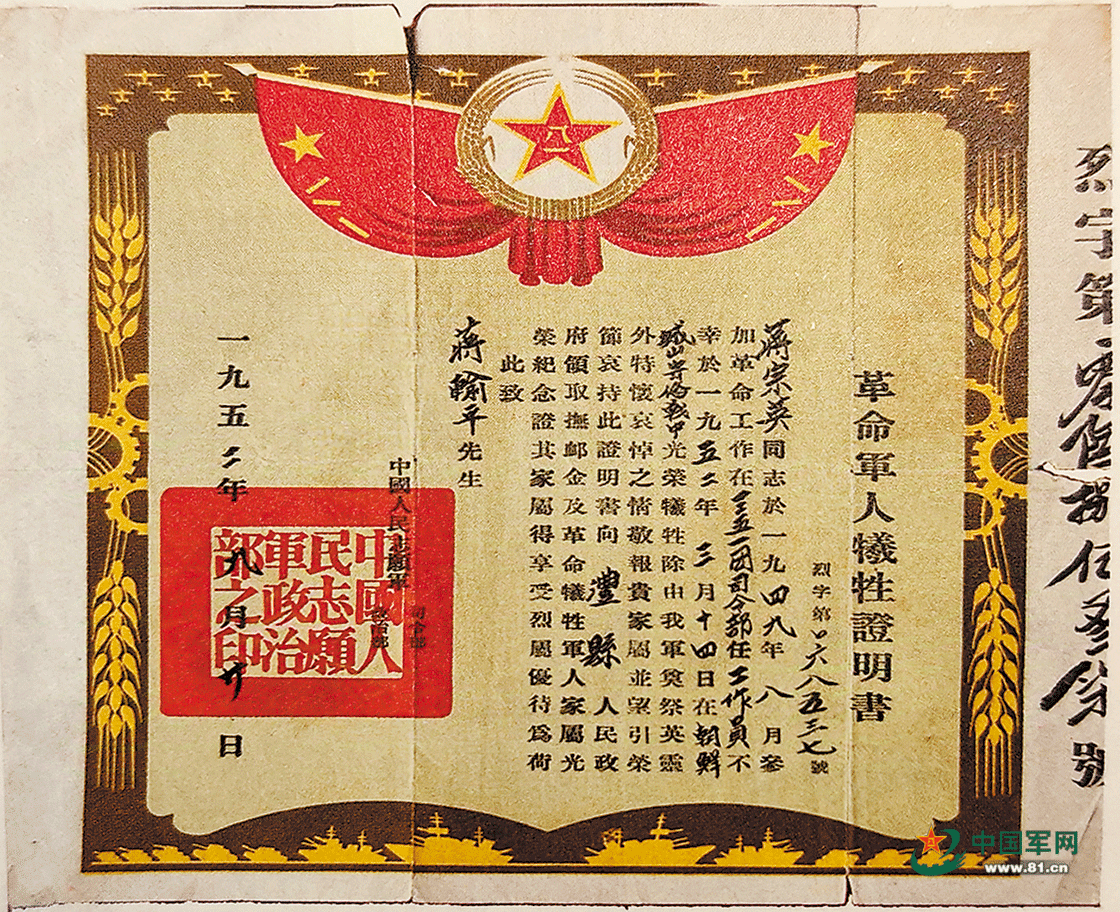 烈字第
號
革命軍人犧牲證明書
烈字第〇六八五三七號
蔣宗英同志於一九四九年八月參
加革命工作在三五一團司令部任工作員不
幸於一九五二年三月十四日在朝鮮
戰中光榮犧牲除由我軍奠祭英靈
外特懷哀悼之情敬報貴家屬並望引榮
節哀持此證明書向豐縣人民政
府領取撫卹金及革命犧牲軍人家屬光
榮紀念證其家屬得享受烈屬優待為荷
此致
蔣輸平先生
中國人民志願軍
司令部
政治部
一九五二年八月廿日
中國人
民志願
軍政治
部之印
八一
八一
八一
中国军网
www.81.cn